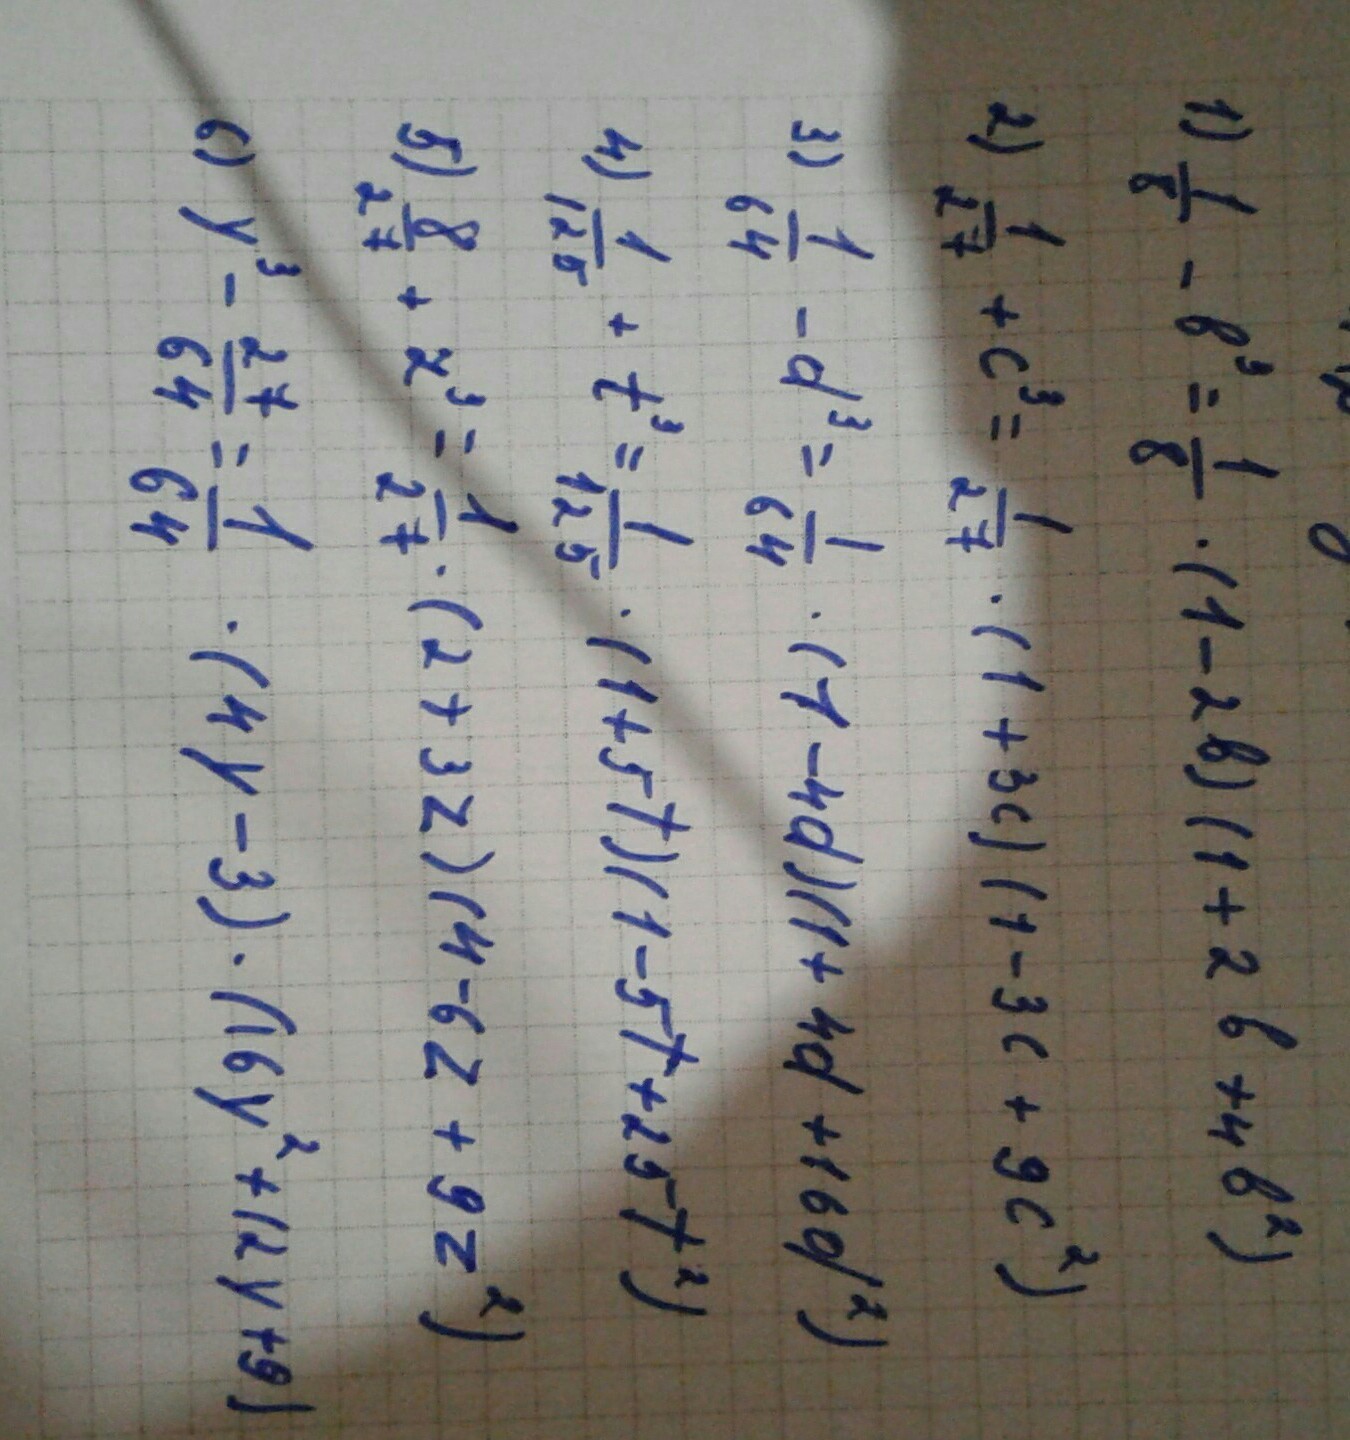 1) 1/8 - b³ = 1/8 · (1 - 2b)(1 + 2b + 4b²)
2) 1/27 + c³ = 1/27 · (1 + 3c)(1 - 3c + 9c²)
3) 1/64 - d³ = 1/64 · (1 - 4d)(1 + 4d + 16d²)
4) 1/125 + t³ = 1/125 · (1 + 5t)(1 - 5t + 25t²)
5) 8/27 + z³ = 1/27 · (2 + 3z)(4 - 6z + 9z²)
6) y³ - 27/64 = 1/64 · (4y - 3) · (16y² + 12y + 9)